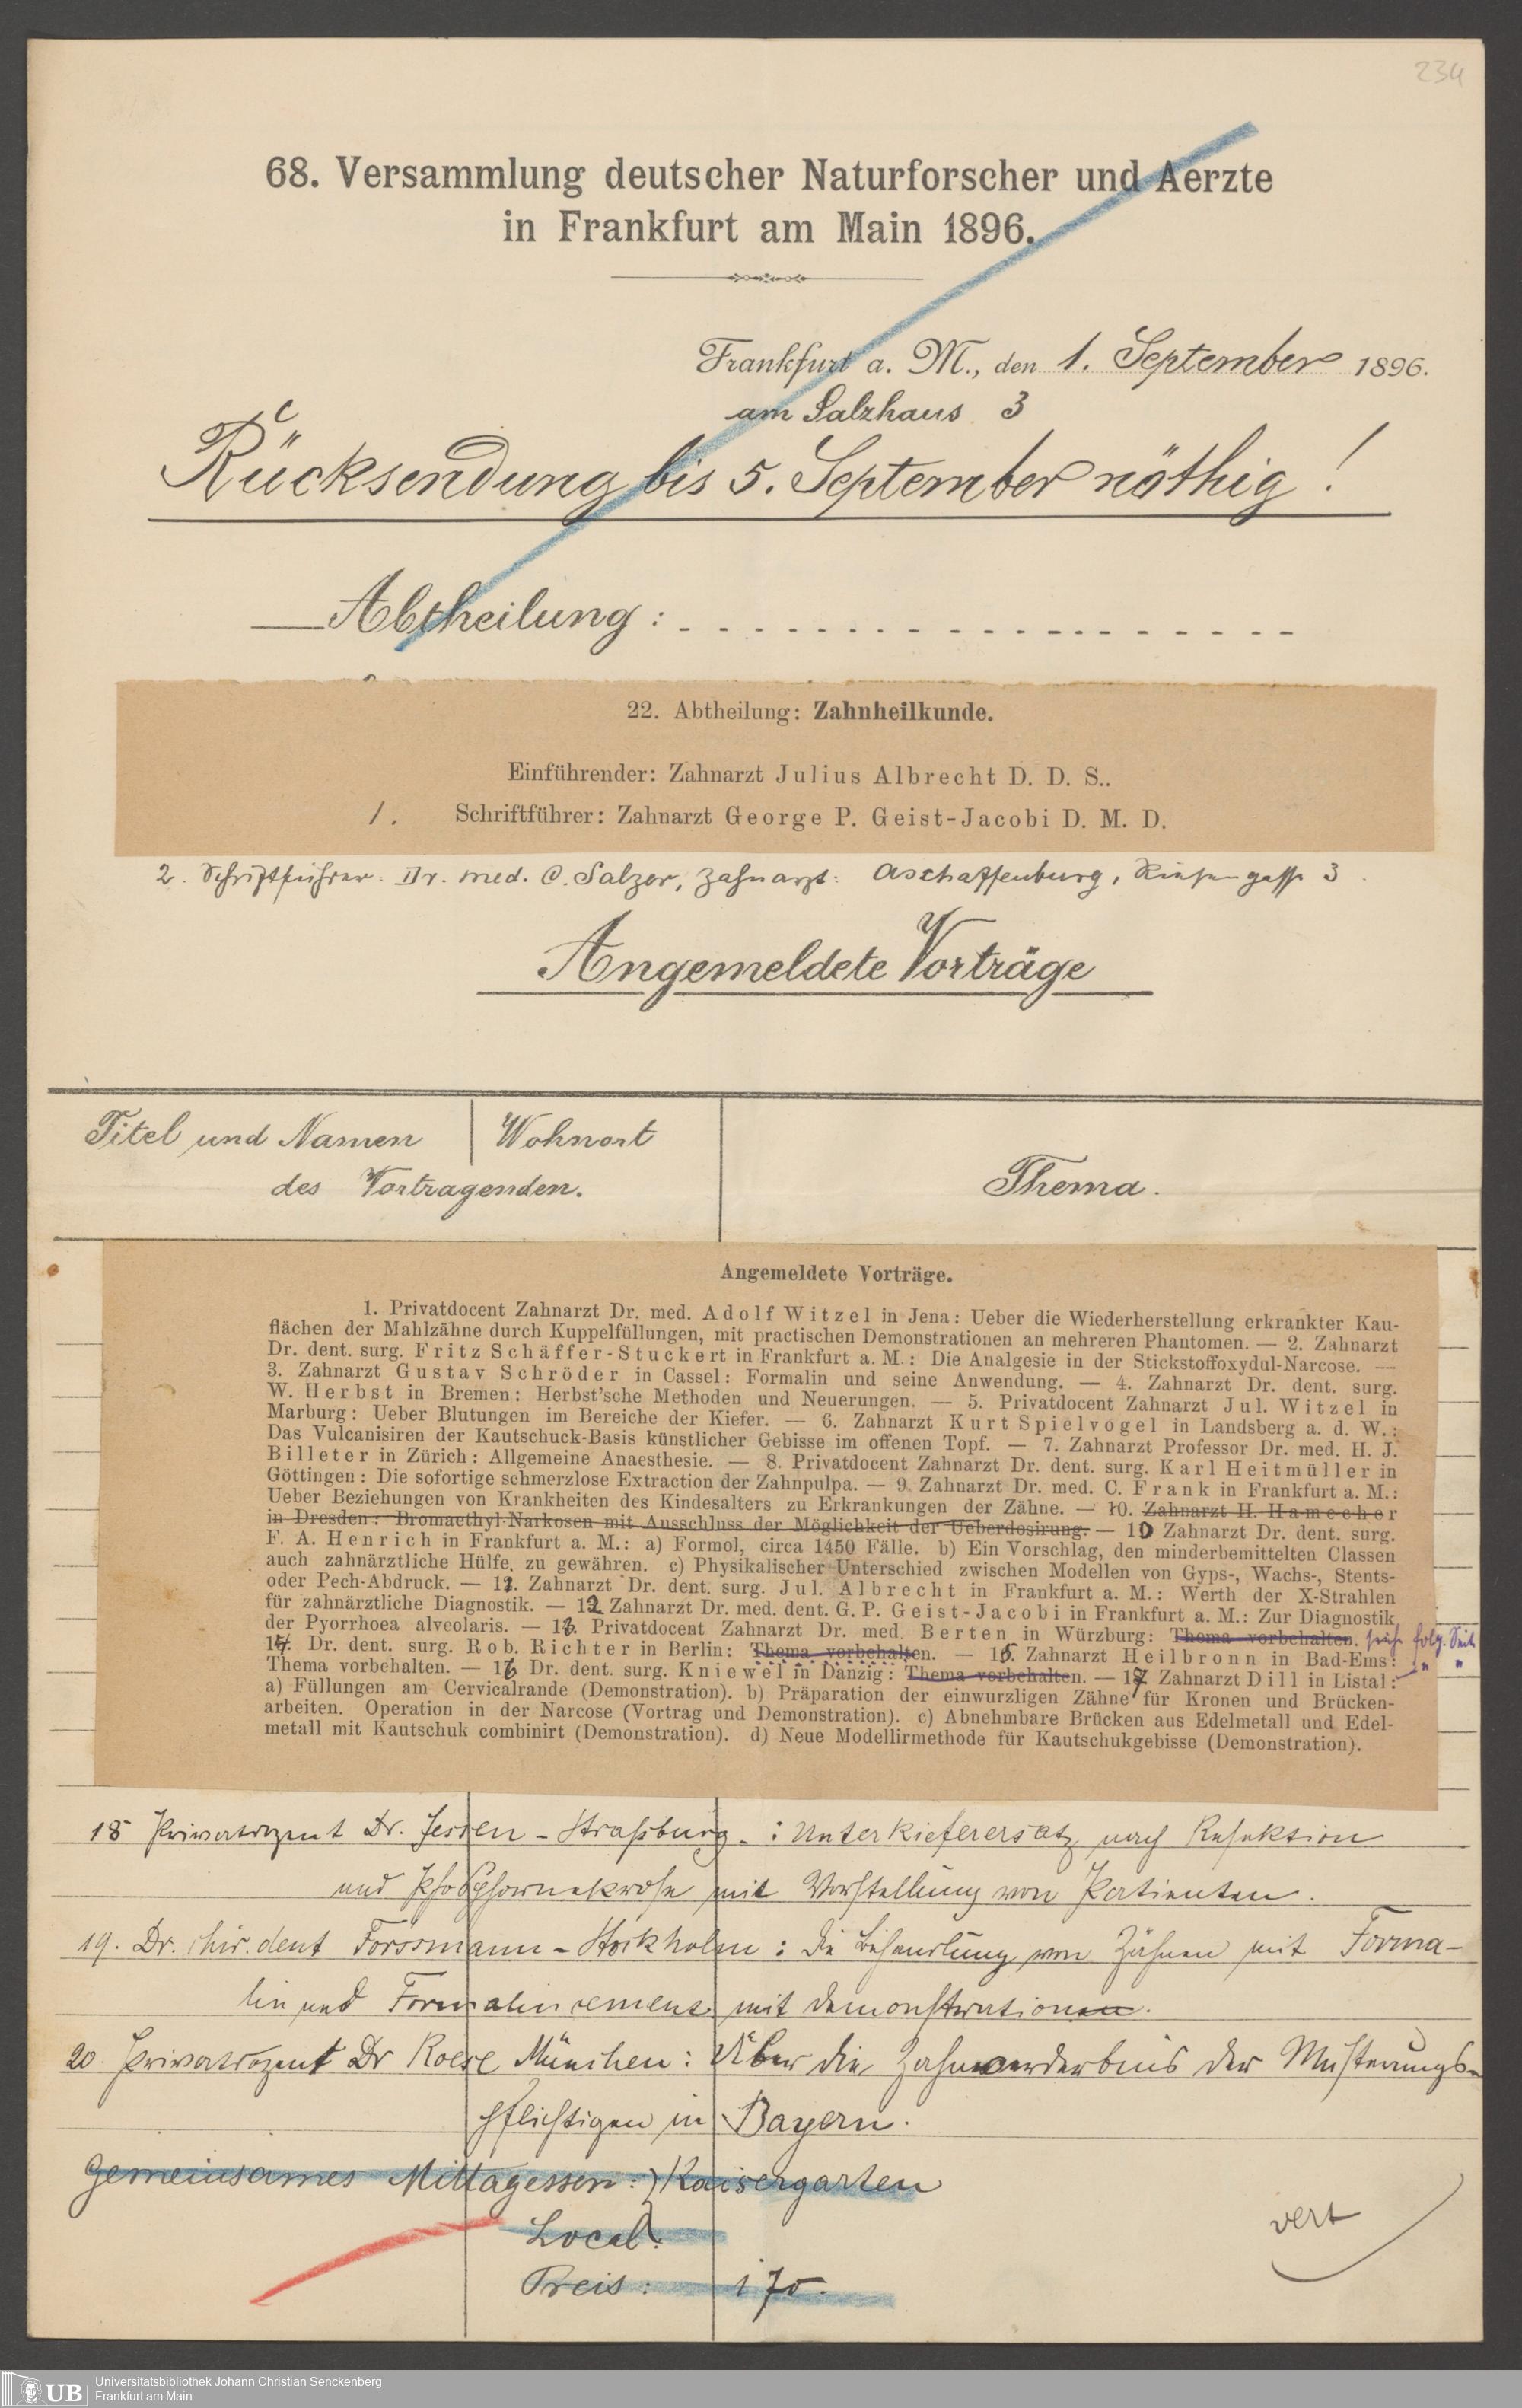 234
68. Versammlung deutscher Naturforscher und Aerzte
in Frankfurt am Main 1896.
Frankfurt a. M., den 1. September 1896.
am Salzhaus 3
Rücksendung bis 5. September nöthig!
Abtheilung: . . . . . . . . . . . . . . . . . . .
22. Abtheilung: Zahnheilkunde.
Einführender: Zahnarzt Julius Albrecht D. D. S..
1. Schriftführer: Zahnarzt George P. Geist-Jacobi D. M. D.
2. Schriftführer: Dr. med. C. Salzer, Zahnarzt: Aschaffenburg, 3
Angemeldete Vorträge
Titel und Namen Wohnort
des Vortragenden.
Thema.
Angemeldete Vorträge.
1. Privatdocent Zahnarzt Dr. med. Adolf Witzel in Jena: Ueber die Wiederherstellung erkrankter Kau-
flächen der Mahlzähne durch Kuppelfüllungen, mit practischen Demonstrationen an mehreren Phantomen. — 2. Zahnarzt
Dr. dent. surg. Fritz Schäffer-Stuckert in Frankfurt a. M.: Die Analgesie in der Stickstoffoxydul-Narcose. —
3. Zahnarzt Gustav Schröder in Cassel: Formalin und seine Anwendung. — 4. Zahnarzt Dr. dent. surg.
W. Herbst in Bremen: Herbst'sche Methoden und Neuerungen. — 5. Privatdocent Zahnarzt Jul. Witzel in
Marburg: Ueber Blutungen im Bereiche der Kiefer. — 6. Zahnarzt Kurt Spielvogel in Landsberg a. d. W.:
Das Vulcanisiren der Kautschuck-Basis künstlicher Gebisse im offenen Topf. — 7. Zahnarzt Professor Dr. med. H. J.
Billeter in Zürich: Allgemeine Anaesthesie. — 8. Privatdocent Zahnarzt Dr. dent. surg. Karl Heitmüller in
Göttingen: Die sofortige schmerzlose Extraction der Zahnpulpa. — 9. Zahnarzt Dr. med. C. Frank in Frankfurt a. M.:
Ueber Beziehungen von Krankheiten des Kindesalters zu Erkrankungen der Zähne. — 10. Zahnarzt H. Hamecher
in Dresden: Bromaethyl-Narkosen mit Ausschluss der Möglichkeit der Ueberdosirung. — 10 Zahnarzt Dr. dent. surg.
F. A. Henrich in Frankfurt a. M.: a) Formol, circa 1450 Fälle. b) Ein Vorschlag, den minderbemittelten Classen
auch zahnärztliche Hülfe, zu gewähren. c) Physikalischer Unterschied zwischen Modellen von Gyps-, Wachs-, Stents-
oder Pech-Abdruck. — 11. Zahnarzt Dr. dent. surg. Jul. Albrecht in Frankfurt a. M.: Werth der X-Strahlen
für zahnärztliche Diagnostik. — 12 Zahnarzt Dr. med. dent. G. P. Geist-Jacobi in Frankfurt a. M.: Zur Diagnostik
der Pyorrhoea alveolaris. — 13. Privatdocent Zahnarzt Dr. med. Berten in Würzburg: Thema vorbehalten. siehe folg. Seite
14. Dr. dent. surg. Rob. Richter in Berlin: Thema vorbehalten. — 15. Zahnarzt Heilbronn in Bad-Ems: " "
Thema vorbehalten. — 16 Dr. dent. surg. Kniewel in Danzig: Thema vorbehalten. — 17 Zahnarzt Dill in Listal:
a) Füllungen am Cervicalrande (Demonstration). b) Präparation der einwurzligen Zähne für Kronen und Brücken-
arbeiten. Operation in der Narcose (Vortrag und Demonstration). c) Abnehmbare Brücken aus Edelmetall und Edel-
metall mit Kautschuk combinirt (Demonstration). d) Neue Modellirmethode für Kautschukgebisse (Demonstration).
18 Privatdozent Dr. Jessen - Straßburg - : Unterkieferersatz nach Resektion
und Phosphornekrose mit Vorstellung von Patienten.
19. Dr. chir. dent Forssmann - Stockholm: die Behandlung von Zähnen mit Forma-
lin und Formalincement mit Demonstrationen.
20. Privatdozent Dr Roese München: Über die Zahnverderbnis der Musterungs-
pflichtigen in Bayern.
Gemeinsames Mittagessen: Kaisergarten
Local:
Preis: 1 70.
vert
UB
Universitätsbibliothek Johann Christian Senckenberg
Frankfurt am Main